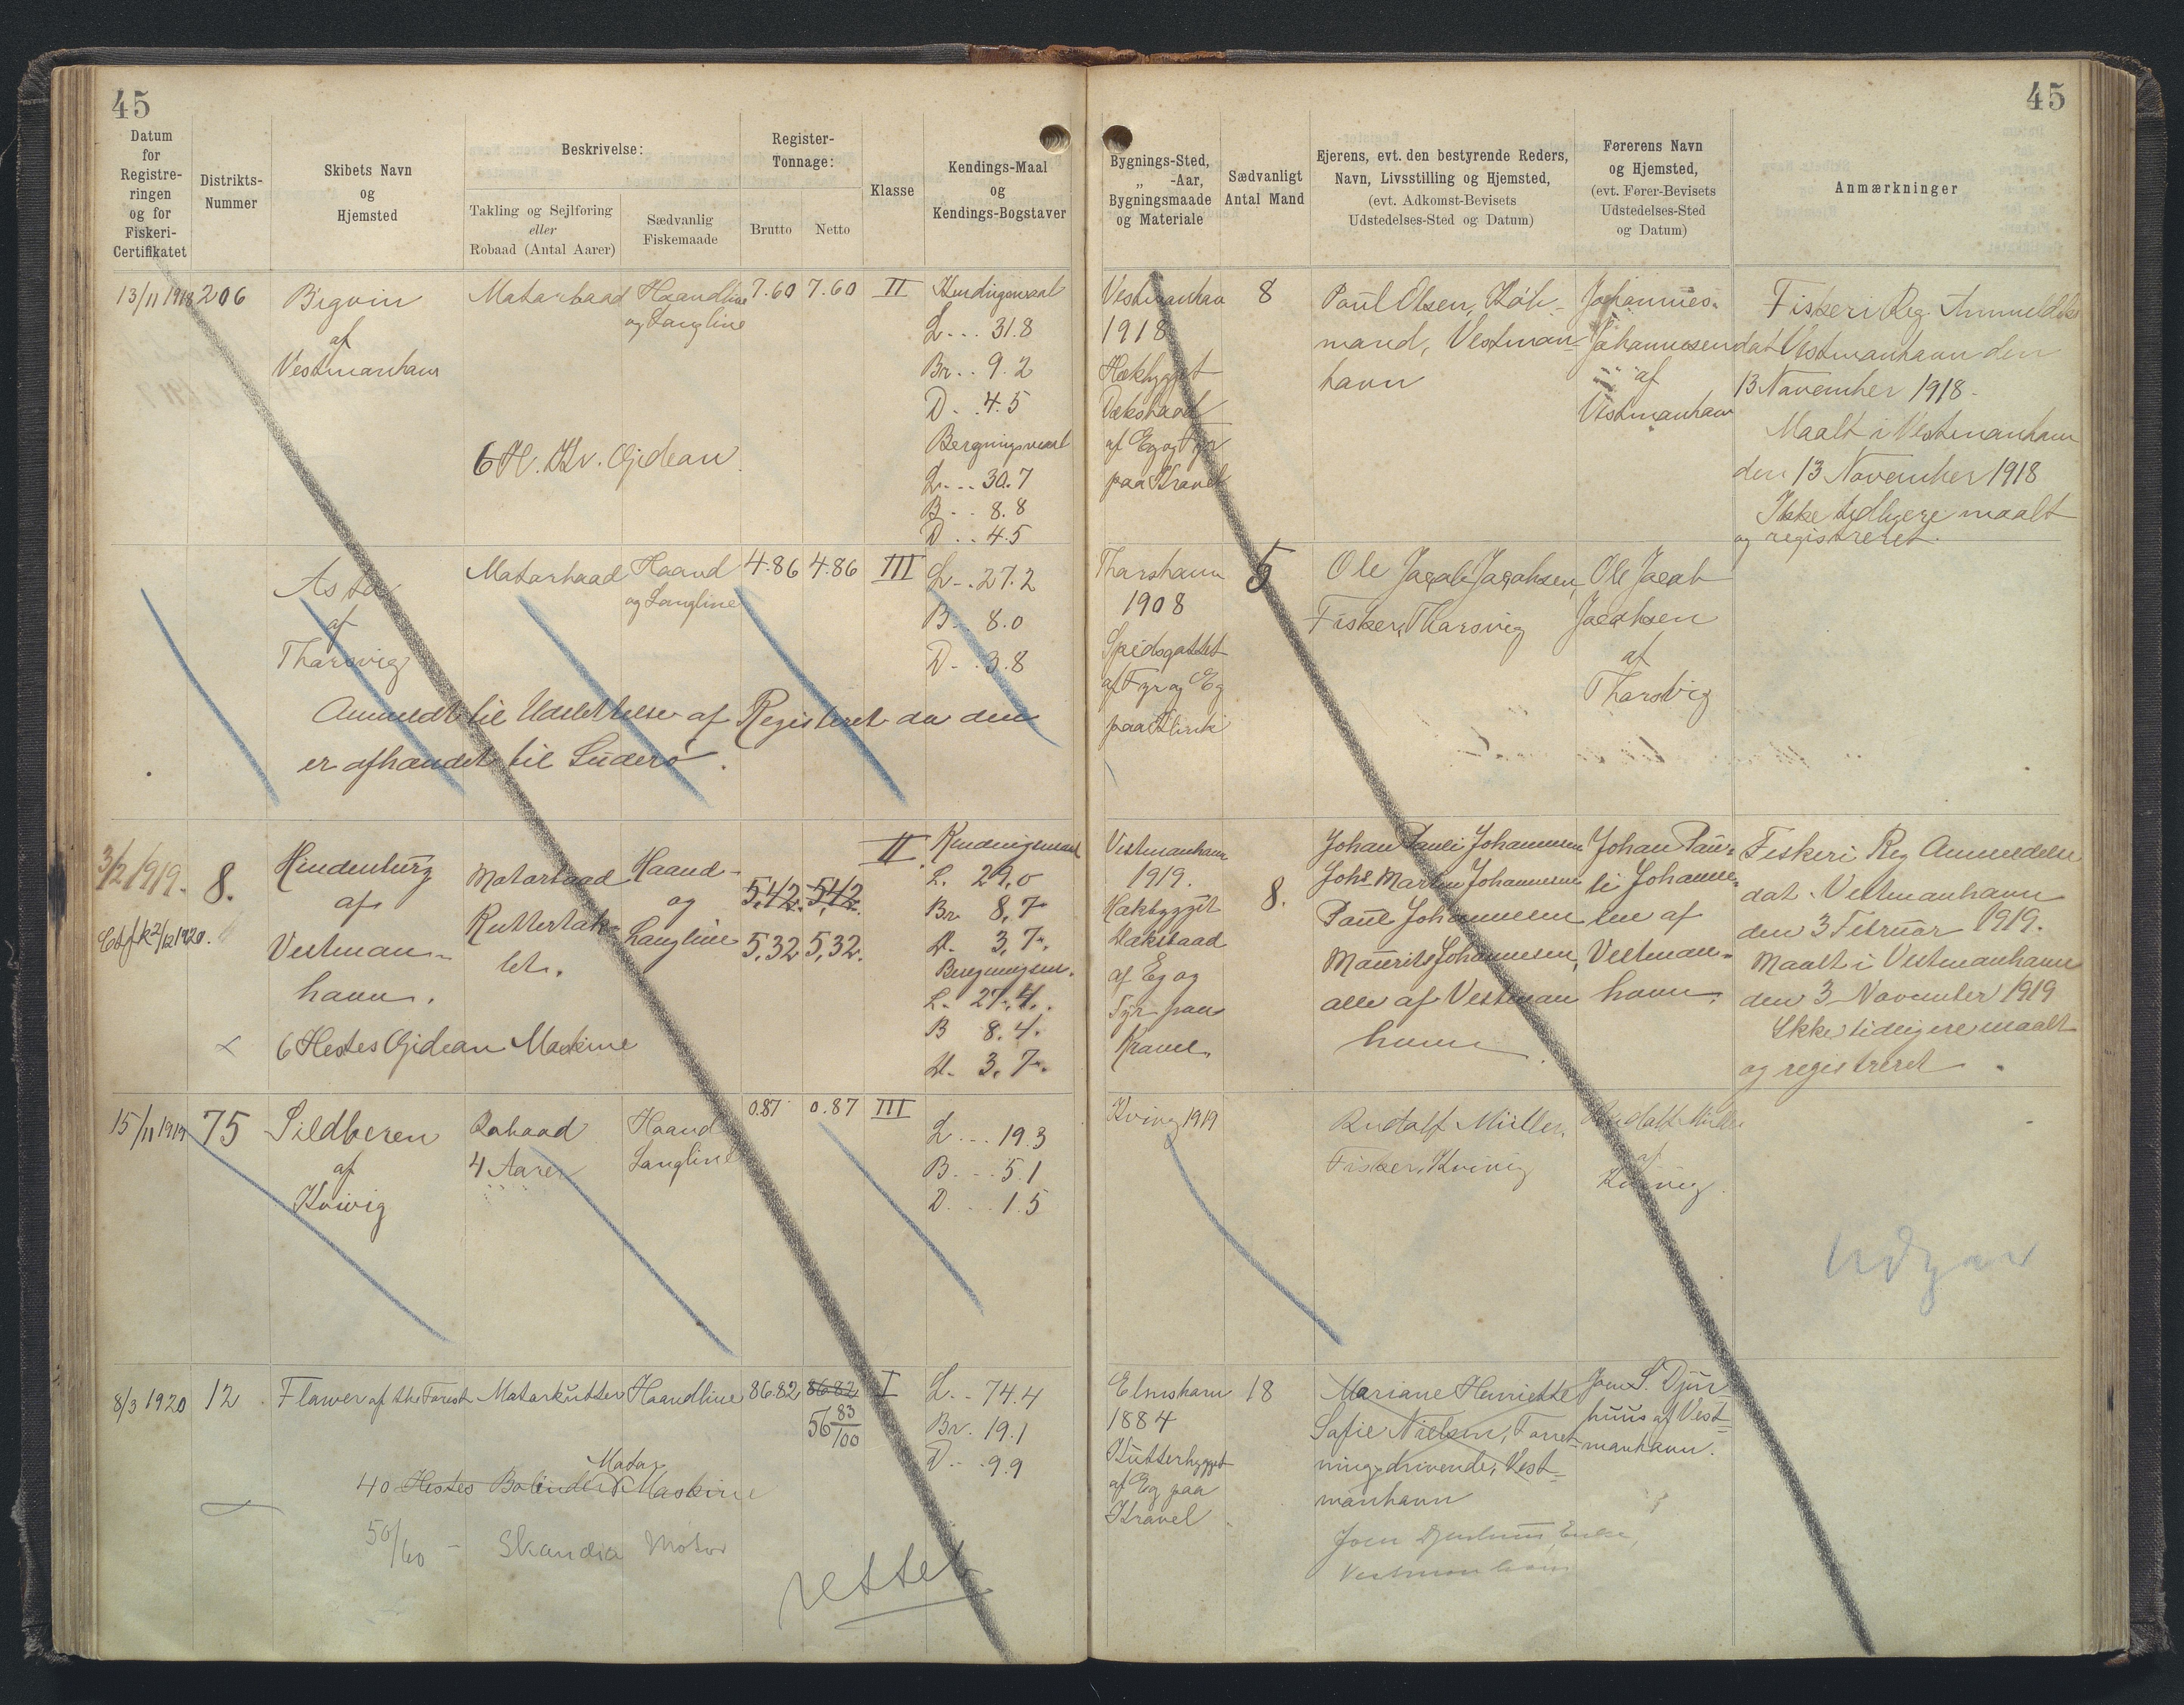 45
45
Datum
for
Registre-
ringen
og for
Fiskeri-
Certifikatet
Distrikts-
Nummer
Skibets Navn
og
Hjemsted
Beskrivelse:
Takling og Sejlføring
eller
Robaad (Antal Aarer)
Sædvanlig
Fiskemaade
Register-
Tonnage:
Brutto
Netto
Klasse
Kendings-Maal
og
Kendings-Bogstaver
Bygnings-Sted,
„ -Aar,
Bygningsmaade
og Materiale
Sædvanligt
Antal Mand
Ejerens, evt. den bestyrende Reders,
Navn, Livsstilling og Hjemsted,
(evt. Adkomst-Bevisets
Udstedelses-Sted og Datum)
Førerens Navn
og Hjemsted,
(evt. Fører-Bevisets
Udstedelses-Sted
og Datum)
Anmærkninger
13/11 1918
206
af
Vestmanhavn
Motorbaad
Haandline
og Langline
6 H. Kr. Gideon
7.60
7.60
II
Kendingsmaal
L... 31.8
Br.. 9.2
D. .4.5
Bergningsmaal
L... 30.7
B.. 8.8
D.. 4.5
Vestmanhavn
1918
Hækbygget
Dæksbaad
af Eg og Fyr
paa Kravel
8
Poul Olsen, Køb-
mand, Vestman-
havn
Johannes
Johannesen
af
Vestmanhavn
Fiskeri Reg. Anmeldelse
dat Vestmanhavn den
13 November 1918.
Maalt i Vestmanhavn
den 13 November 1918
Ikke tidligere maalt
og registreret.
Asta
af
Thorsvig
Motorbaad
Haand
og Langline
4.86
4.86
III
L... 27.2
B. 8.0
D.. 3.8
Anmeldt til Udslettelse af Registeret da den
er afhændet til Suderø.
Thorshavn
1908
Spidsgattet
af Fyr og Eg
paa Klink
5
Ole Jacob Jacobsen,
Fisker, Thorsvig
Ole Jacob
Jacobsen
af
Thorsvig
3/2 1919.
2/12 1920.
8.
Hindenburg
af
Vestman-
havn.
Motorbaad
Kuttertak-
let.
Haand-
og
Langline
6 Hestes Gideon Maskine
5,42. 5,42.
5,32 5,32.
II
Kendingsmaal
L. 29,0
Br. 8,7
D. 3,7.
L. 27,4.
B 8,4.
D. 3,7.
Vestmanhavn
1919.
Hækbygget
Dæksbaad
af Eg og
Fyr paa
Kravel.
8.
Johan Pauli Johannesen
Johs Martin Johannesen
Poul Johannesen
Maurits Johannesen,
alle af Vestman
havn
Johan Pau-
li Johanne-
sen af
Vestman-
havn.
Fiskeri Reg Anmeldelse
dat. Vestmanhavn
den 3 Februar 1919.
Maalt i Vestmanhavn
den 3 November 1919
Ikke tidligere maalt
og registreret.
15/11 1919
75
Sildberen
af
Kvivig
Robaad
4 Aarer
Haand
Langline
0.87
0.87
III
L... 19.3
B... 5.1
D... 1.5
Kvivig 1919
Rudolf Müller,
Fisker, Kvivig
Rudolf Müller
af
Kvivig.
Udgaar
8/3 1920
12
Flower of the Forest
Motorkutter
Haandline
86.82
86.82
56 83/100
I
L.. 74.4
Br. 19.1
D.. .9.9
Motor
40 Hestes Bolinders Maskine
50/60 - Skandia Motor
rettet
Elmshavn
1884
Kutterbygget
af Eg paa
Kravel.
18
Mariane Henriette
Sofie Nielsen, Forret-
ningsdrivende, Vest-
manhavn
Joen Djurhuus, Enke,
Vestmanhavn
Joen S. Djur-
huus af Vest-
manhavn.